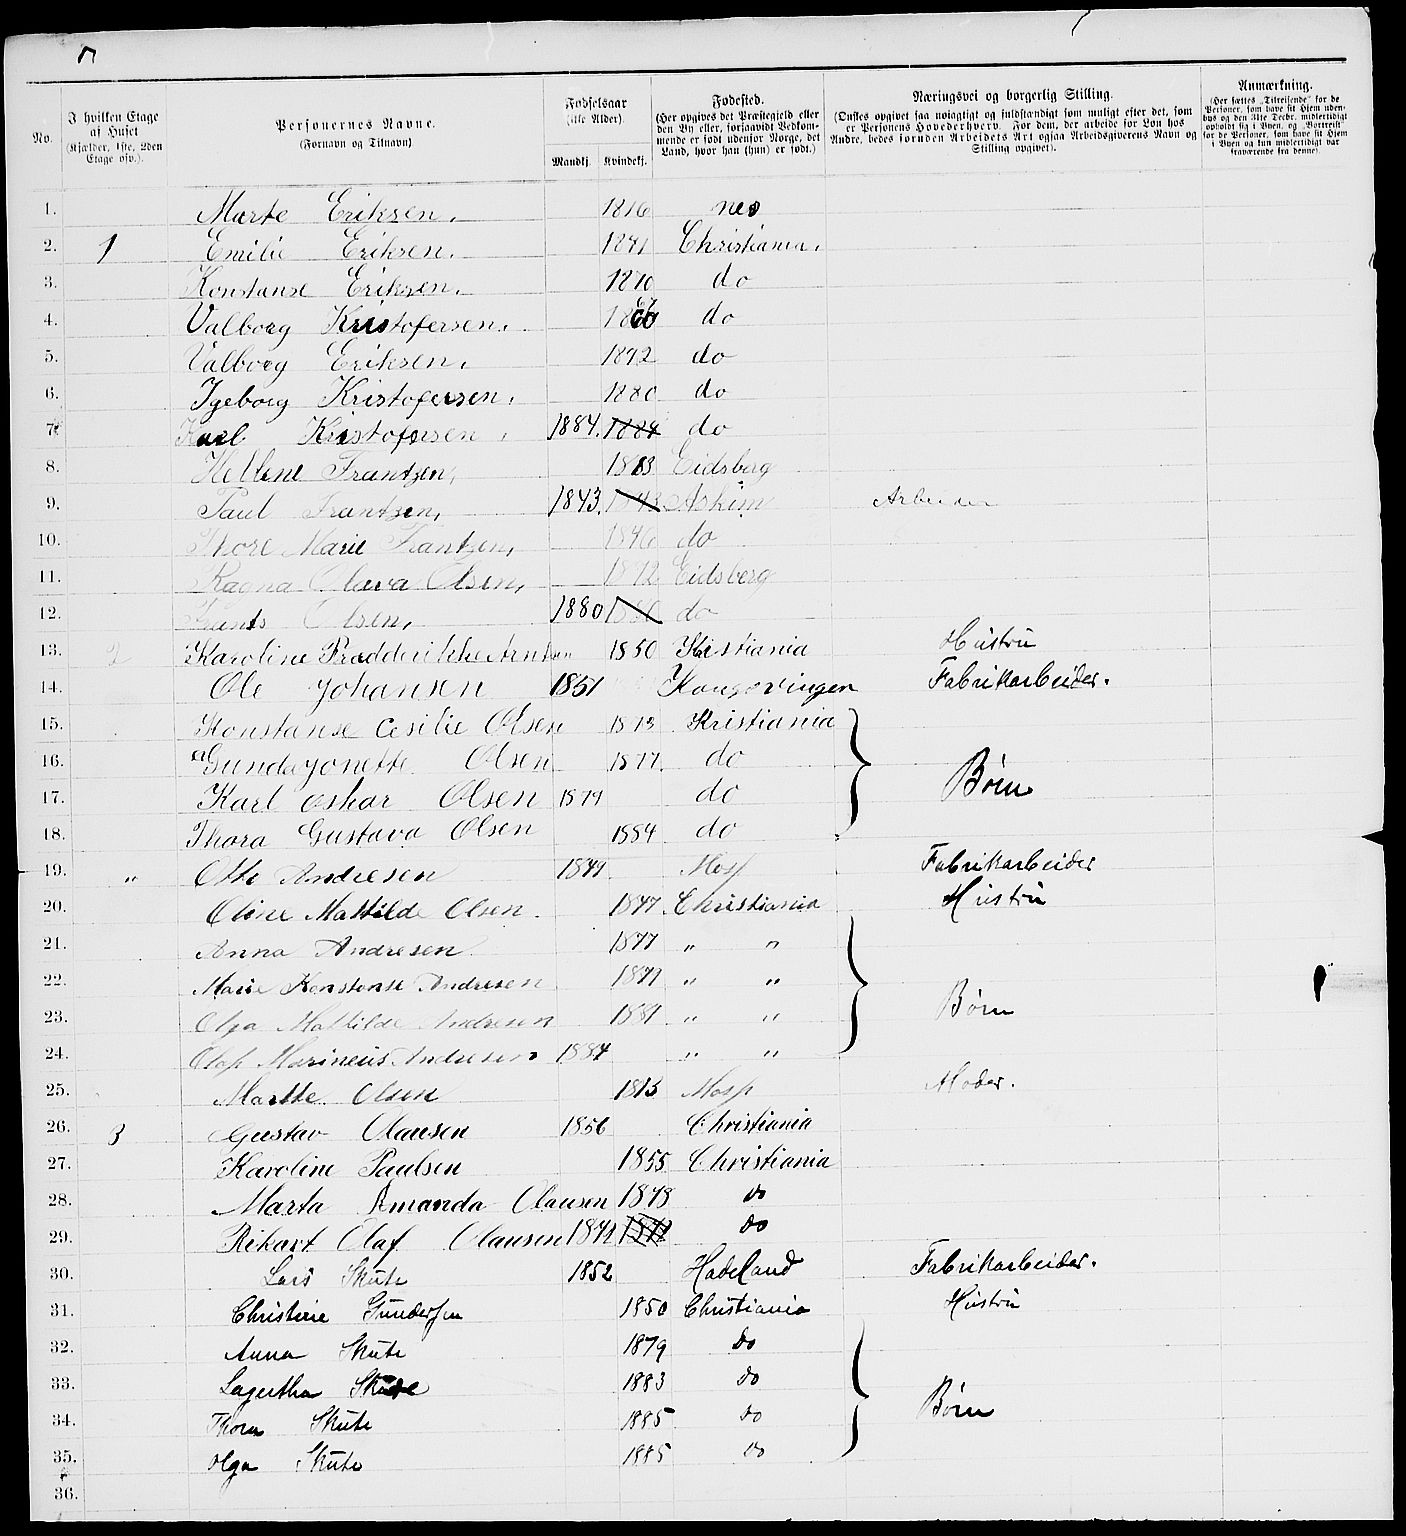 No.
I hvilken Etage af Huset (Kjælder, 1ste, 2den Etage osv.).
Personernes Navne. (Fornavn og Tilnavn)
Fødselsaar (ikke Alder). Mandkj. Kvindekj.
Fødested. (Her opgives det Præstegjeld eller den By eller, forsaavidt Vedkommende er født udenfor Norge, det Land, hvor han (hun) er født.)
Næringsvei og borgerlig Stilling. (Ønskes opgivet saa nøiagtigt og fuldstændigt som muligt efter det, som er Personens Hovederhverv. For dem, der arbeide for Løn hos Andre, bedes foruden Arbeidets Art ogsaa Arbeidsgiverens Navn og Stilling opgivet).
Anmærkning. (Her sættes „Tilreisende“ for de Personer, som have sit Hjem udenbys og den 31te Decbr. midlertidigt opholdt sig i Byen, og „Bortreist“ for de Personer, som have sit Hjem i Byen og kun midlertidigt var fraværende fra denne)
1. Marte Eriksen. 1816 nes
2. 1 Emilie Eriksen. 1841 Christiania.
3. Konstanse Eriksen. 1870 do
4. Valborg Kristofersen. do
5. Valborg Eriksen. 1872 do
6. Igeborg Kristofersen. 1880 do
7. Karl Kristofersen. 1884. 1884 do
8. Hellene Frantzen, 1813 Eidsberg
9. Paul Frantzen, 1843. 1843 Askim Arbeider
10. Thore Marie Frantzen, 1846 do
11. Ragna Olava Olsen, 1872 Eidsberg
12. Frants Olsen, 1880 1880 do
13. 2 Karoline Frædderikke 1850 Kristiania Hustru
14. Ole Johansen 1851 Kongsvingen Fabrikarbeider.
15. Konstanse Cesilie Olsen 1873 Kristiania
16. Gunda Jonette Olsen 1877 do Børn
17. Karl Oskar Olsen 1879 do
18. Thora Gustava Olsen 1884 do
19. „ Otto Andresen 1849 Moss Fabrikarbeider
20. Oline Mathilde Olsen. 1847 Christiania Hustru
21. Anna Andresen 1877 „ „
22. Marie Konstanse Andresen 1879 „ „
23. Olga Mathilde Andresen 1881 „ „ Børn
24. Olaf Marineus Andresen 1884 „ „
25. Marthe Olsen 1813 Moss Moder.
26. 3 Gustav Olausen 1856 Christiania
27. Karoline Paulsen 1855 Christiania
28. Marta Amanda Olausen 1878 do
29. Rikart Olaf Olausen do
30. Lars Skute 1852 Hadeland Fabrikarbeider.
31. Christine Gundersen 1850 Christiania Hustru
32. Anna Skute 1879 do
33. Lagertha Skute 1883 do
34. Thora Skute 1885 do Børn
35. Olga Skute 1885 do
36.